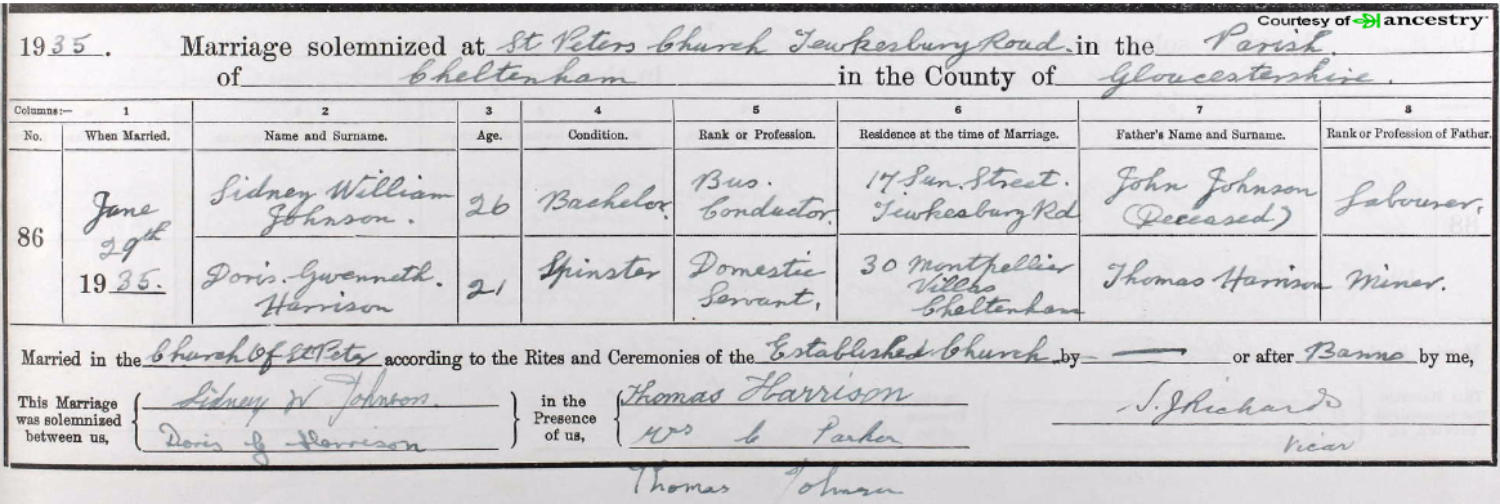 Courtesy of ancestry
1935. Marriage solemnized at St Peters Church Tewkesbury Road in the Parish
of Cheltenham in the County of Gloucestershire.
Columns:— 1 2 3 4 5 6 7 8
No. When Married. Name and Surname. Age. Condition. Rank or Profession. Residence at the time of Marriage. Father's Name and Surname. Rank or Profession of Father.
86
June
29th
1935.
Sidney William
Johnson.
26
Bachelor
Bus.
Conductor
17 Sun. Street.
Tewkesbury Rd
John Johnson
(Deceased)
Labourer,
Doris. Gwenneth.
Harrison
21
Spinster
Domestic
Servant,
30 Montpellier
Villas
Cheltenham
Thomas Harrison
Miner.
Married in the Church Of St Peter according to the Rites and Ceremonies of the Established Church by — or after Banns by me,
This Marriage
was solemnized
between us,
Sidney W Johnson.
Doris G Harrison
in the
Presence
of us,
Thomas Harrison
Mrs C Parker
Thomas Johnson
S. J Richards
Vicar